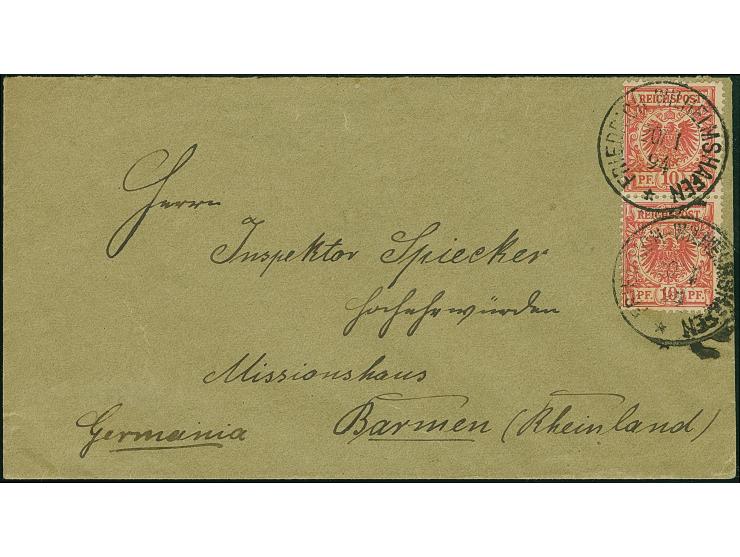 REICHSPOST
PF. 10
FRIEDRICH WILHELMSHAFEN
1
94
REICHSPOST
PF. 10 PF.
WILHELMSHAFEN
Herrn
Inspektor Spiecker
Hochehrwürden
Missionshaus
Germania Barmen (Rheinland)